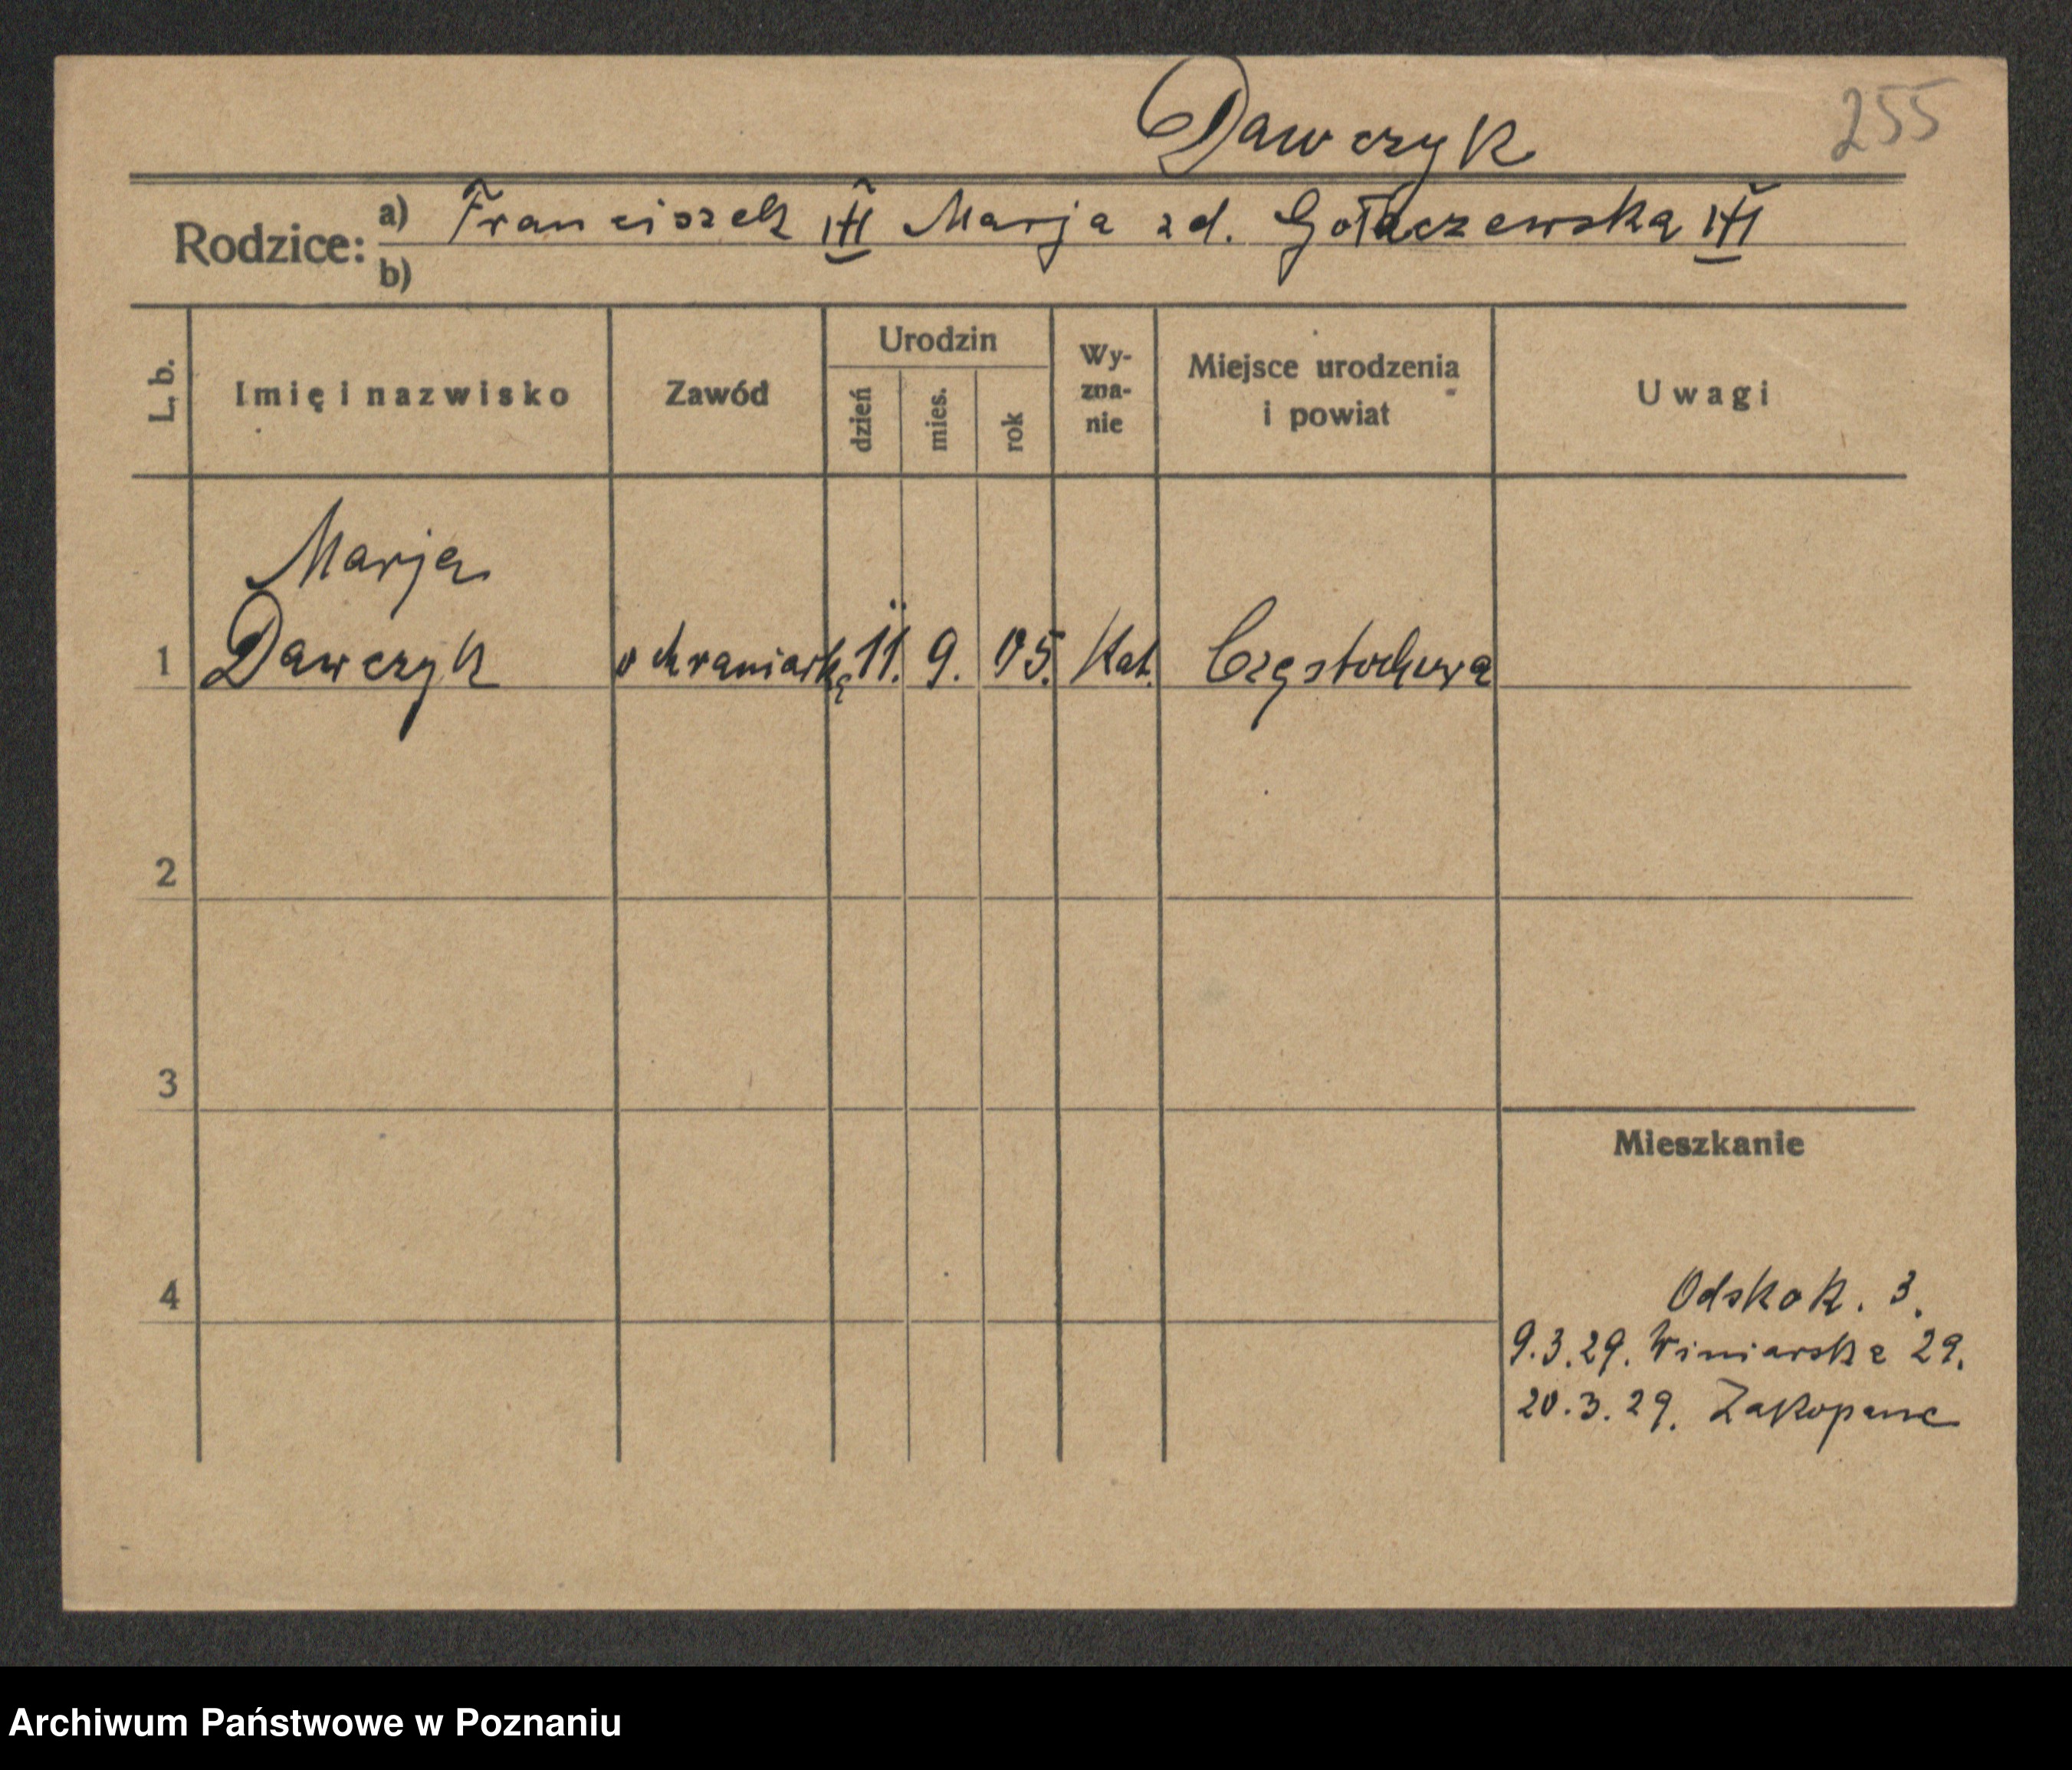 Dawczyk 255
Rodzice: a) Franciszek Marja zd. Gołaczewska
b)
L. b. Imię i nazwisko Zawód Urodzin dzień mies. rok Wy-zna-nie Miejsce urodzenia i powiat Uwagi
Marja
1 Dawczyk ochraniarka 11. 9. 05. Kat. Częstochowa
2
3
Mieszkanie
4 Odskok. 3.
9.3.29. Winiarska 29.
20.3.29. Zakopane
Archiwum Państwowe w Poznaniu